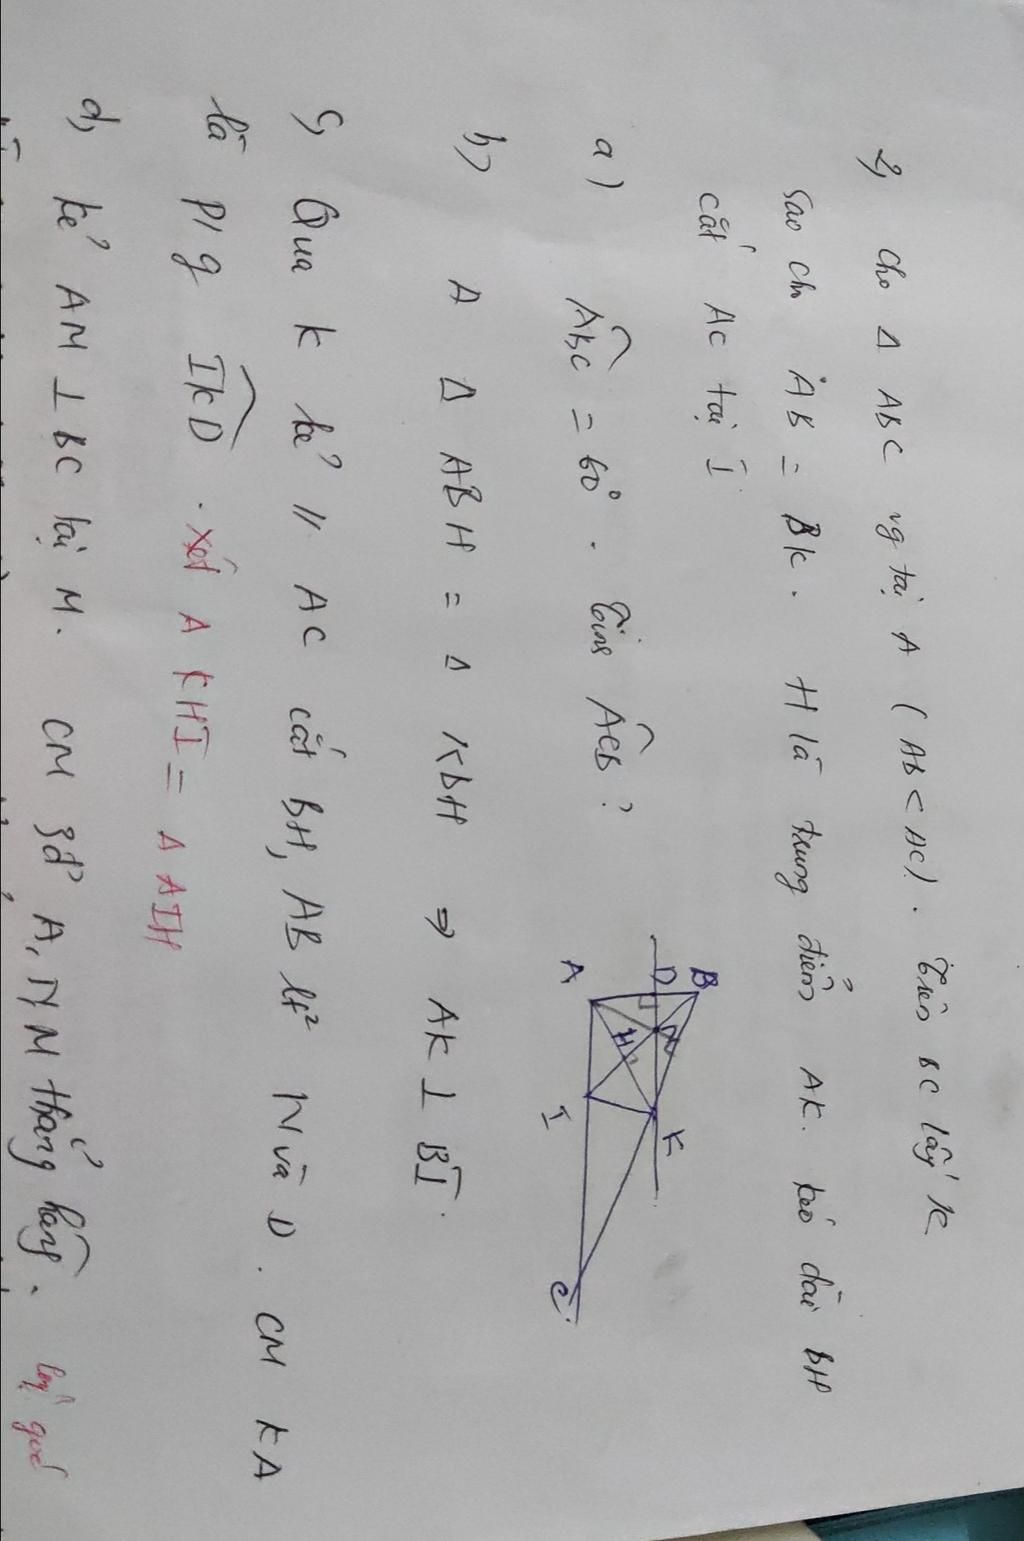 2, Cho Δ ABC vg tại A ( AB < AC ). Trên BC lấy K
sao cho AB = BK. H là trung điểm AK. kéo dài BH
cắt AC tại I
a) ABC = 60°. Tính ACB ?
b) Δ ABH = Δ KBH ⇒ AK ⊥ BI.
c, Qua K kẻ // AC cắt BH, AB lt² N và D. CM KA
là p/g IKD. xét Δ KHI = Δ AIH
d, kẻ AM ⊥ BC tại M. CM 3đ A, N, M thẳng hàng.
B
D
A
N
H
K
I
C